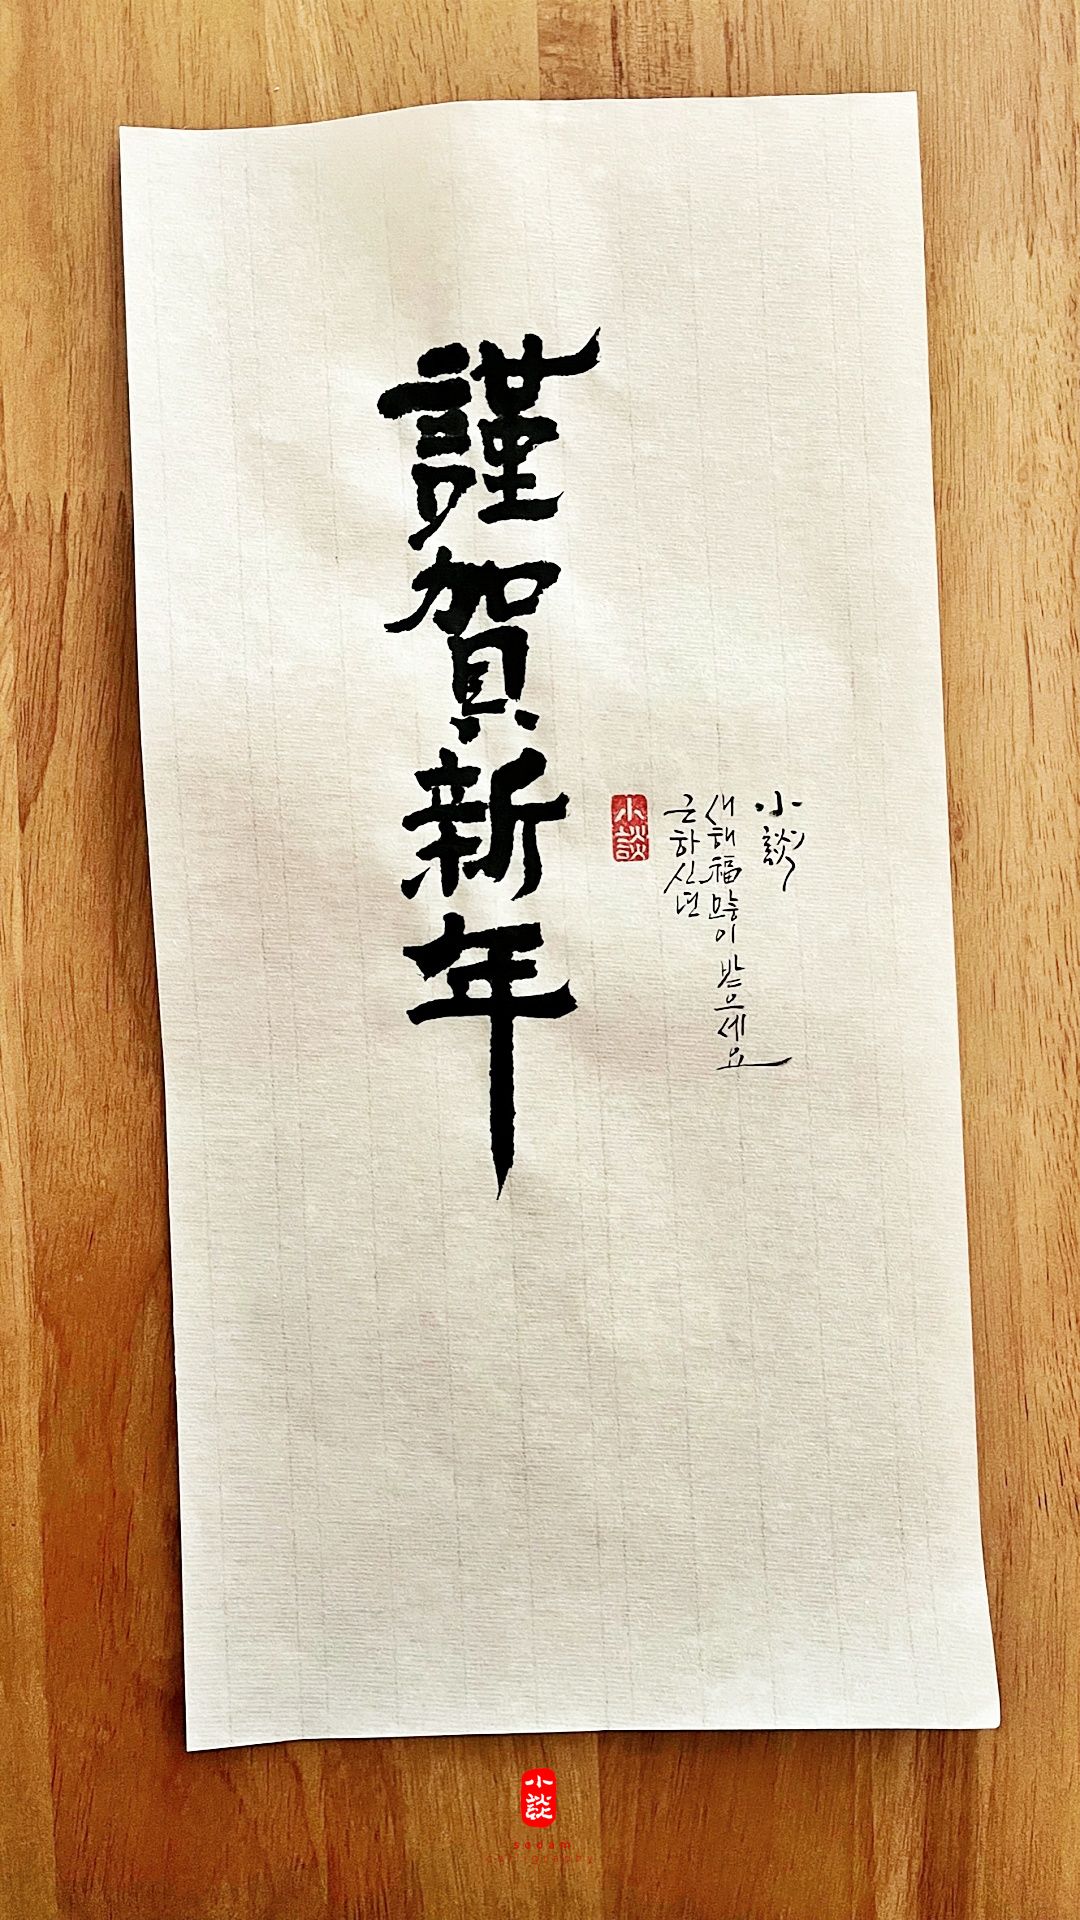 謹賀新年
小談
근하신년
새해福많이 받으세요
小談
小談
sodam
calligraphy